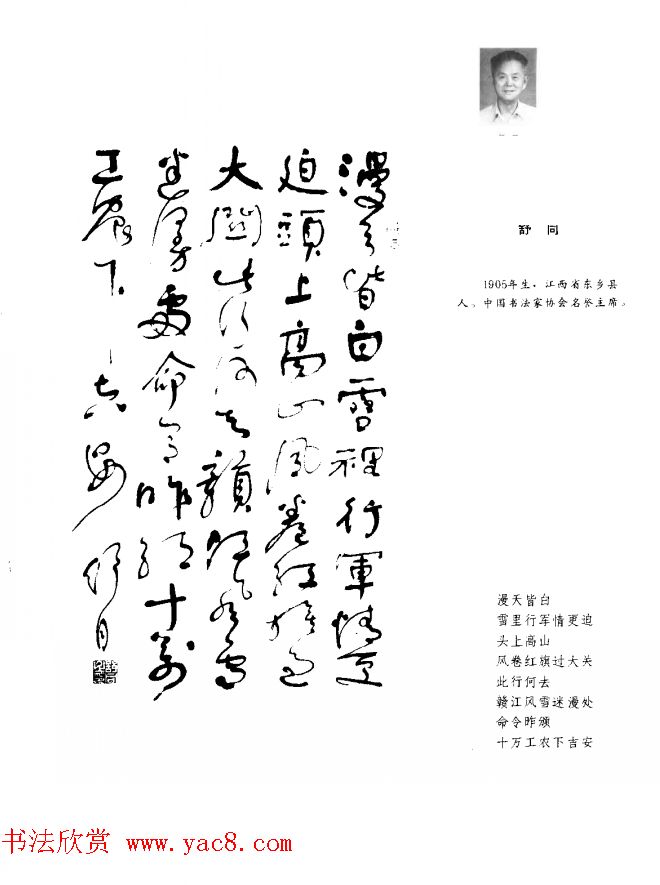 漫天皆白雪裡行軍情更
迫頭上高山風卷红旗过
大關此行何去贛江風雪
迷漫處命令昨頒十萬
工農下吉安 舒同
舒 同
1905年生,江西省东乡县
人。中国书法家协会名誉主席。
漫天皆白
雪里行军情更迫
头上高山
风卷红旗过大关
此行何去
赣江风雪迷漫处
命令昨颁
十万工农下吉安
书法欣赏 www.yac8.com